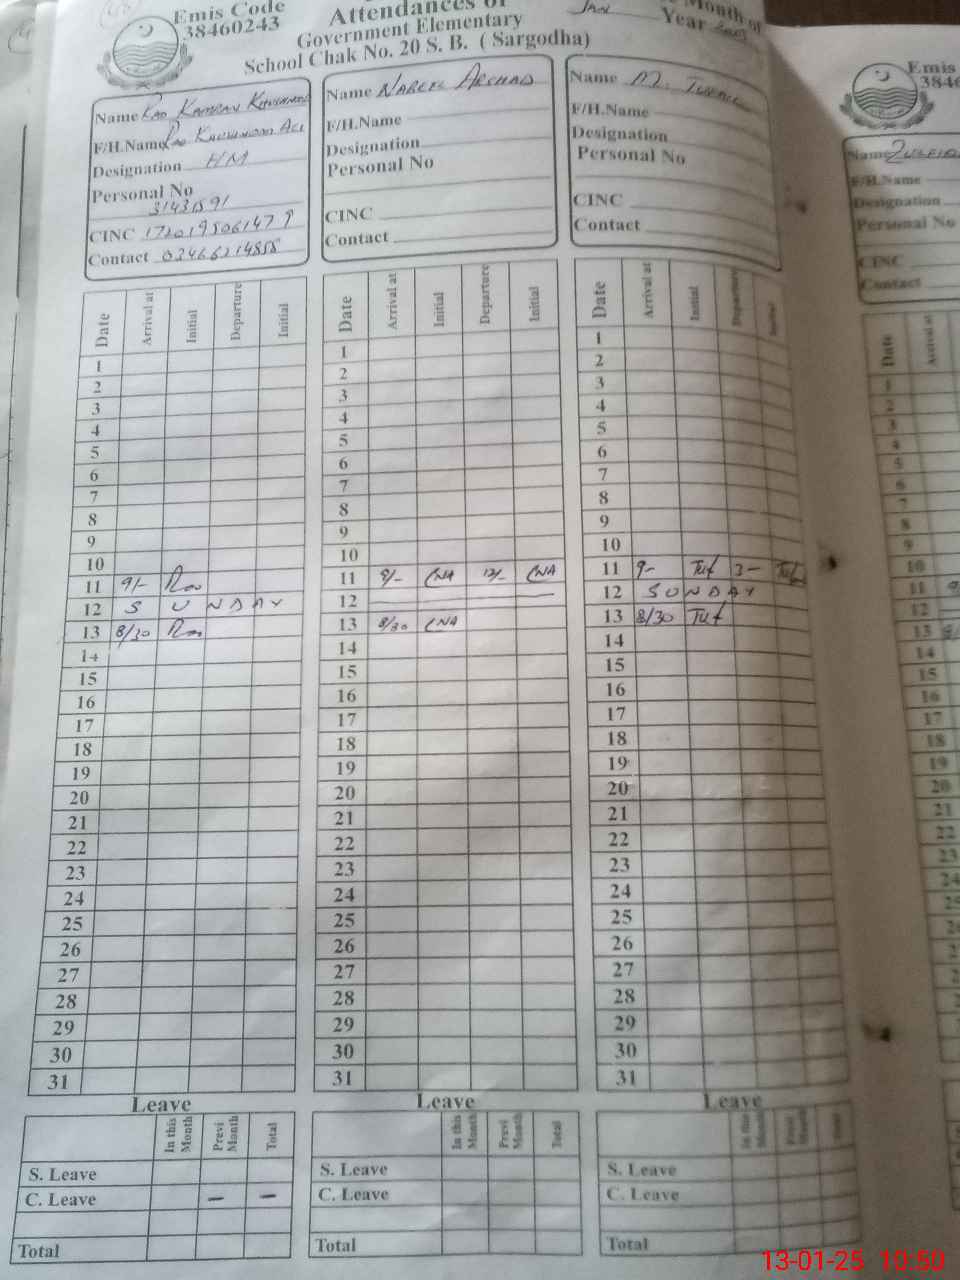 Emis Code
38460243
Attendances of
Government Elementary
School Chak No. 20 S. B. ( Sargodha)
Month of
Jan
Year
Name Rao Kamran Khurshid
F/H.Name Rao Khurshid Ali
Designation HM
Personal No
31431591
CINC
Contact 03466214858
Name Nabeel Arshad
F/H.Name
Designation
Personal No
CINC
Contact
Name M. Tufail
F/H.Name
Designation
Personal No
CINC
Contact
Emis
384
Name
F/H.Name
Designation
Personal No
CINC
Contact
Date Arrival at Initial Departure Initial
1
2
3
4
5
6
7
8
9
10
11 9/-
12 S U N D A Y
13 8/30
14
15
16
17
18
19
20
21
22
23
24
25
26
27
28
29
30
31
Date Arrival at Initial Departure Initial
1
2
3
4
5
6
7
8
9
10
11 9/- CNA 12/- CNA
12
13 8/30 CNA
14
15
16
17
18
19
20
21
22
23
24
25
26
27
28
29
30
31
Date Arrival at Initial Departure Initial
1
2
3
4
5
6
7
8
9
10
11 9- Tuf 3- Tuf
12 S U N D A Y
13 8/30 Tuf
14
15
16
17
18
19
20
21
22
23
24
25
26
27
28
29
30
31
Date Arrival at
1
2
3
4
5
6
7
8
9
10
11
12
13
14
15
16
17
18
19
20
21
22
23
24
25
Leave
In this Month Previ Month Total
S. Leave
C. Leave – –
Total
Leave
In this Month Previ Month Total
S. Leave
C. Leave
Total
Leave
In this Month Previ Month Total
S. Leave
C. Leave
Total
13-01-25 10:50